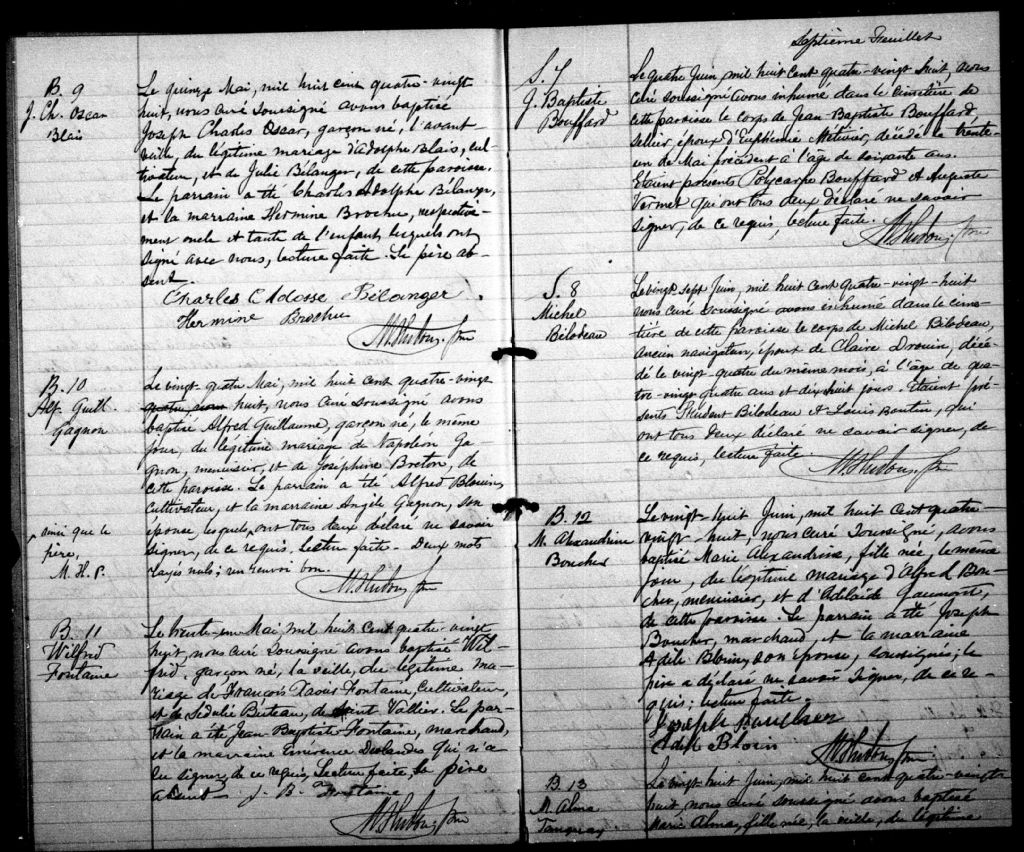 B. 9
J. Ch. Oscar
Blais
Le quinze Mai, mil huit cent quatre-vingt
huit, nous curé soussigné avons baptisé
Joseph Charles Oscar, garçon né, l'avant-
veille, du légitime mariage d'Adolphe Blais, cul-
tivateur, et de Julie Bélanger, de cette paroisse.
Le parrain a été Charles Adolphe Bélanger,
et la marraine Hermine Brochu, respective-
ment oncle et tante de l'enfant, lesquels ont
signé avec nous, lecture faite. Le père ab-
sent.
Charles Bélanger
Hermine Brochu
B. 10
Alf. Guill.
Gagnon
Le vingt-quatre Mai, mil huit cent quatre-vingt
huit, nous curé soussigné avons
baptisé Alfred Guillaume, garçon né, le même
jour, du légitime mariage de Napoléon Ga-
gnon, menuisier, et de Joséphine Breton, de
cette paroisse. Le parrain a été Alfred Blouin,
cultivateur, et la marraine Angèle Gagnon, son
épouse, lesquels, ont tous deux déclaré ne savoir
signer, de ce requis. Lecture faite. Deux mots
rayés nuls; un renvoi bon.
ainsi que le
père,
M. H. P.
B. 11
Wilfrid
Fontaine
Le trente-un Mai, mil huit cent quatre-vingt
huit, nous curé soussigné avons baptisé Wil-
frid, garçon né, la veille, du légitime ma-
riage de François Xavier Fontaine, cultivateur,
et de Sedulie Buteau, de Saint Vallier. Le par-
rain a été Jean-Baptiste Fontaine, marchand,
et la marraine Emérence Deslandes qui n'a
su signer, de ce requis, Lecture faite, le père
absent. J. B. Fontaine
Septième Feuillet
S. 7
J. Baptiste
Bouffard
Le quatre Juin, mil huit cent quatre-vingt huit, nous
curé soussigné avons inhumé dans le cimetière de
cette paroisse le corps de Jean-Baptiste Bouffard,
sellier, époux d'Euphémie Métivier, décédé le trente-
un de Mai précédent à l'âge de soixante ans.
Etaient présents Polycarpe Bouffard et Auguste
Vermet qui ont tous deux déclaré ne savoir
signer, de ce requis, lecture faite.
S. 8
Michel
Bilodeau
Le vingt-sept Juin, mil huit cent quatre-vingt-huit
nous curé soussigné avons inhumé dans le cime-
tière de cette paroisse le corps de Michel Bilodeau,
ancien navigateur, époux de Claire Drouin, décé-
dé le vingt-quatre du même mois, à l'âge de qua-
tre-vingt quatre ans et dix huit jours. Etaient pré-
sents Bilodeau et Louis Boutin, qui
ont tous deux déclaré ne savoir signer, de
ce requis, lecture faite.
B. 12
M. Alexandrine
Boucher
Le vingt-huit Juin, mil huit cent quatre-
vingt-huit nous curé soussigné, avons
baptisé Marie Alexandrine, fille née, le même
jour, du légitime mariage d'Alfred Bou-
cher, menuisier, et d'Adelaïde Gaumont,
de cette paroisse. Le parrain a été Joseph
Boucher, marchand, et la marraine
Adèle Blouin, son épouse, soussignés; le
père a déclaré ne savoir signer, de ce re-
quis; lecture faite.
Joseph
Adèle Blouin
B. 13
M. Alma
Tanguay
Le vingt huit Juin, mil huit cent quatre-vingt
huit nous curé soussigné avons baptisé
Marie Alma, fille née, la veille, du légitime